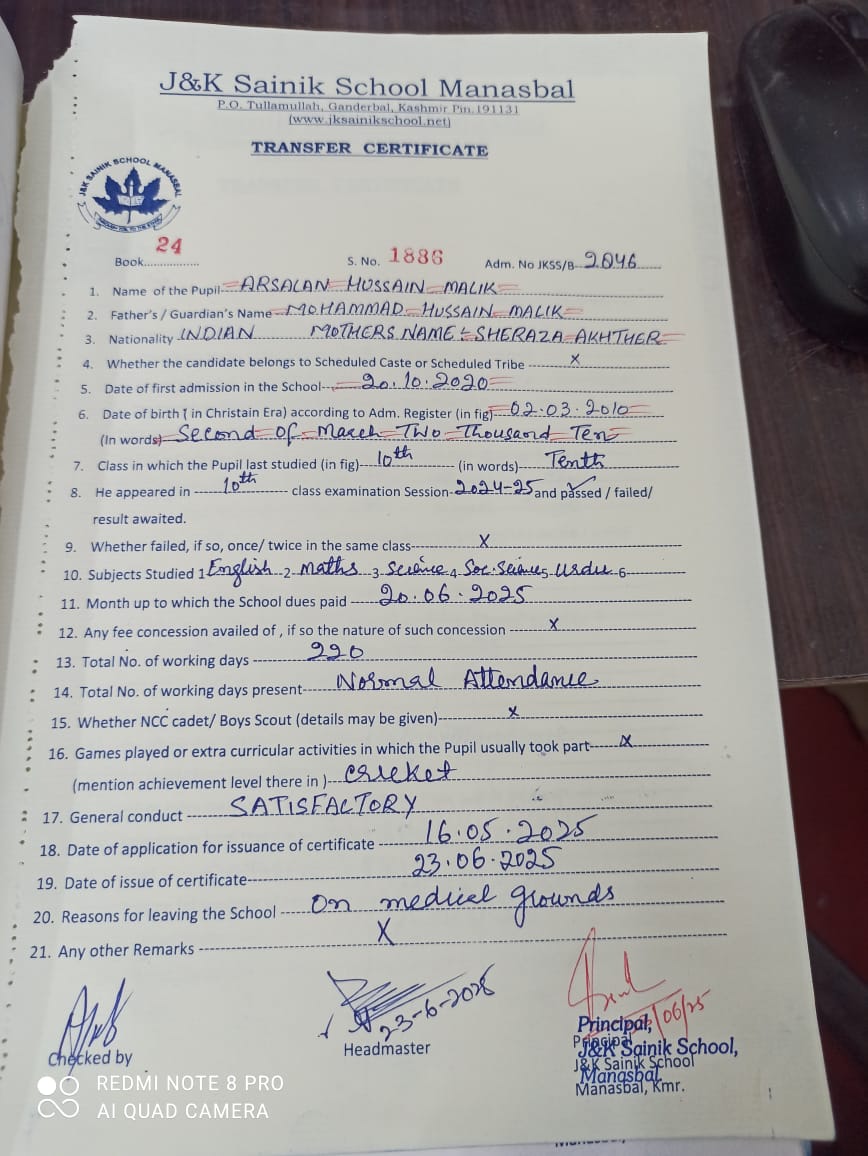 J&K Sainik School Manasbal
P.O. Tullamullah, Ganderbal, Kashmir Pin.191131
(www.jksainikschool.net)
TRANSFER CERTIFICATE
J&K SAINIK SCHOOL MANASBAL
Book................. 24 S. No. 1886 Adm. No JKSS/B 2046
1. Name of the Pupil ARSALAN HUSSAIN MALIK
2. Father's / Guardian's Name MOHAMMAD HUSSAIN MALIK
3. Nationality INDIAN MOTHERS NAME:- SHERAZA AKHTHER
4. Whether the candidate belongs to Scheduled Caste or Scheduled Tribe X
5. Date of first admission in the School 20.10.2020
6. Date of birth ( in Christain Era) according to Adm. Register (in fig) 02.03.2010
(In words) Second Of March Two Thousand Ten
7. Class in which the Pupil last studied (in fig) 10th (in words) Tenth
8. He appeared in 10th class examination Session 2024-25 and passed / failed/
result awaited.
9. Whether failed, if so, once/ twice in the same class X
10. Subjects Studied 1 English 2 Maths 3 Science 4 Soc. Science 5 Urdu 6
11. Month up to which the School dues paid 20.06.2025
12. Any fee concession availed of , if so the nature of such concession X
13. Total No. of working days 220
14. Total No. of working days present Normal Attendance
15. Whether NCC cadet/ Boys Scout (details may be given) X
16. Games played or extra curricular activities in which the Pupil usually took part X
(mention achievement level there in ) Cricket
17. General conduct SATISFACTORY
18. Date of application for issuance of certificate 16.05.2025
19. Date of issue of certificate 23.06.2025
20. Reasons for leaving the School On medical grounds
21. Any other Remarks X
23-6-2025
/06/25
Checked by
Headmaster
Principal,
Principal
J&K Sainik School,
J&K Sainik School
Manasbal
Manasbal, Kmr.
REDMI NOTE 8 PRO
AI QUAD CAMERA